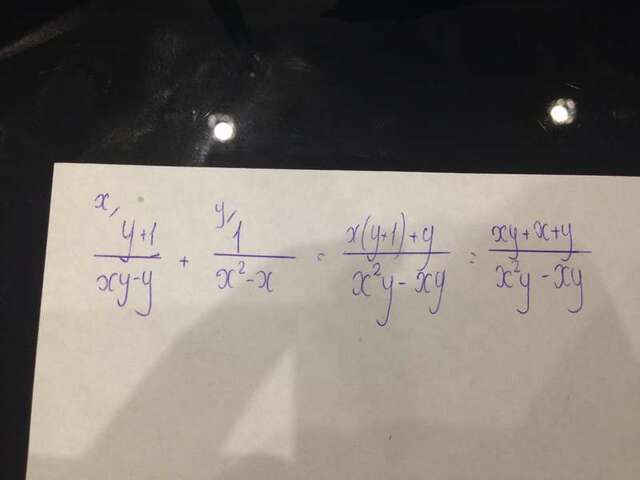 x, y+1 / xy-y + y, 1 / x² - x = x(y+1)+y / x²y - xy = xy+x+y / x²y - xy